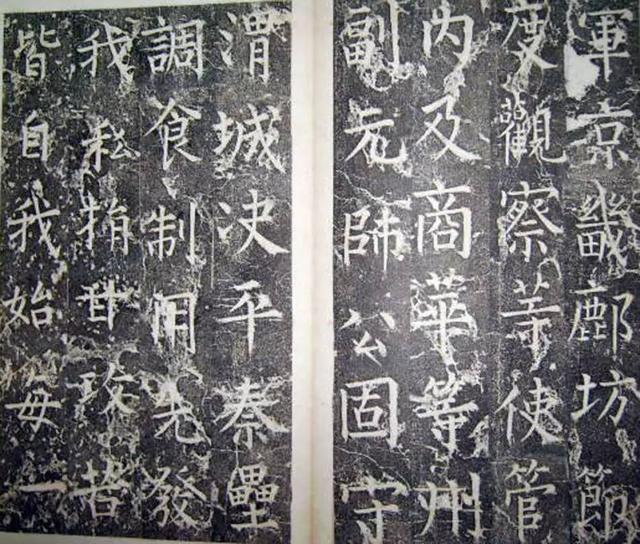 軍京畿鄜坊節
度觀察等使管
内及商華等州
副元帥公固守
渭城决平秦壘
調食制用先發
我私捐甘攻苦
皆自我始每一